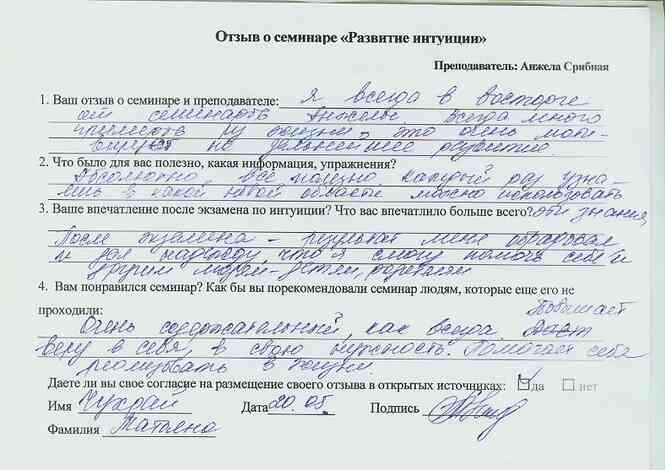 Отзыв о семинаре «Развитие интуиции»
Преподаватель: Анжела Срибная
1. Ваш отзыв о семинаре и преподавателе: Я всегда в восторге
от семинаров Анжелы. Всегда много
примеров из жизни, это очень моти-
вирует на дальнейшее развитие.
2. Что было для вас полезно, какая информация, упражнения?
Абсолютно, все полезно. Каждый раз узна-
ешь в какой новой области можно использовать
3. Ваше впечатление после экзамена по интуиции? Что вас впечатлило больше всего? эти знания
После экзамена - результат меня обрадовал
и дал надежду, что я смогу помочь себе и
другим людям - детям, родителям
4. Вам понравился семинар? Как бы вы порекомендовали семинар людям, которые еще его не
проходили: Повышает
Очень содержательный, как всегда.
веру в себя, в свою нужность. Помогает себя
реализовать в жизни.
Даете ли вы свое согласие на размещение своего отзыва в открытых источниках: да нет
Имя Чухрай Дата 20.05 Подпись
Фамилия Татьяна